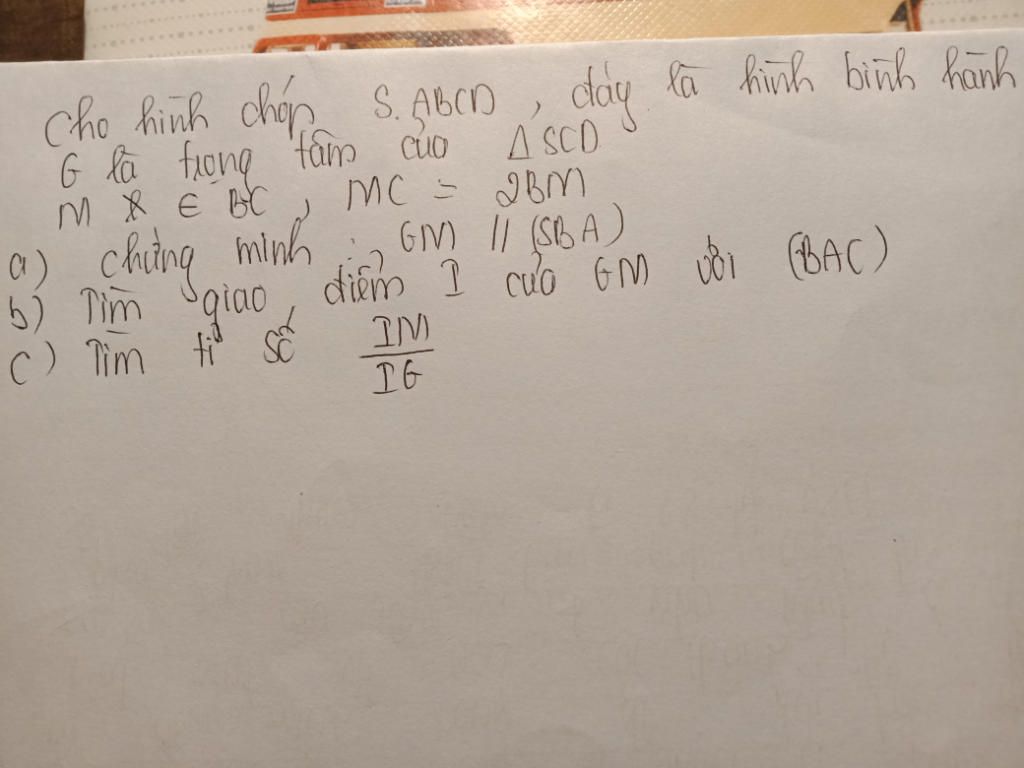 Cho hình chóp S.ABCD, đáy là hình bình hành
G là trọng tâm của ΔSCD
M ∈ BC, MC = 2BM
a) Chứng minh: GM // (SBA)
b) Tìm giao điểm I của GM với (BAC)
c) Tìm tỉ số IM/IG